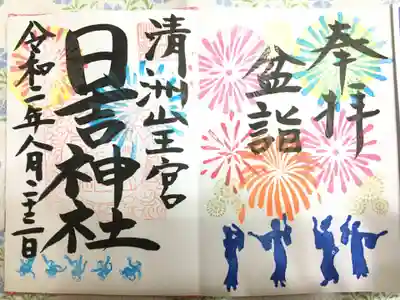 奉拝
盆詣
清洲山王宮
日吉神社
令和二年八月二十二日